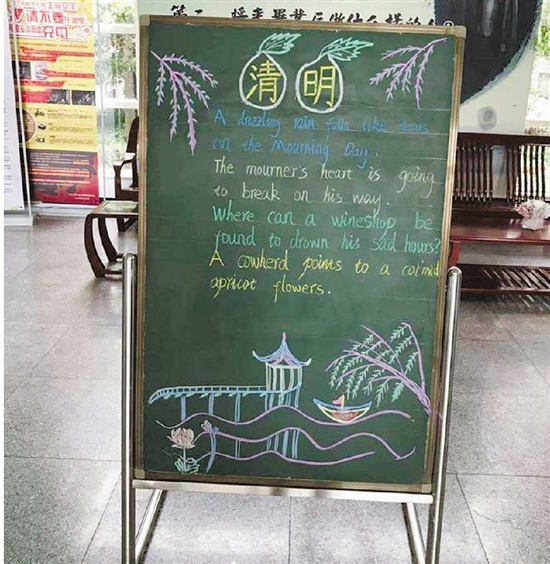 第二、将来畢業后做什么样的
请不要
清明
A dazzling rain falls like tears
on the Mourning Day.
The mourner's heart is going
to break on his way.
Where can a wineshop be
found to drown his sad hours?
A cowherd points to a cot'mid
apricot flowers.